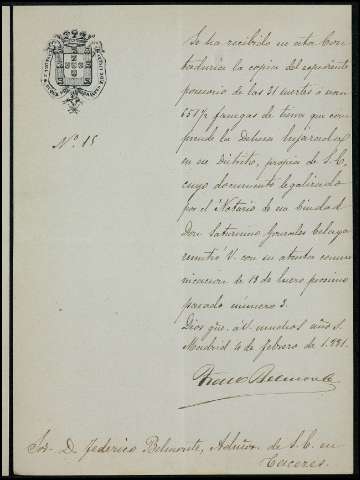 Nº 15
Se ha recibido en esta Con-
taduría la copia del espediente
posesorio de las 31 suertes ó sean
651 1/2 fanegas de tierra que com-
prende la Dehesa Lujarnolas
en su distrito, propia de S. E.
cuyo documento legalizado
por el Notario de esa Ciudad
Don Saturnino Gonzalez Celaya
remitió V. con su atenta comu-
nicacion de 13 de Enero proximo
pasado número 3.
Dios gue. á V. muchos años.
Madrid 4 de Febrero de 1.881.
Franco Belmonte
Sor. D. Federico Belmonte, Admor. de S. E. en
Caceres.